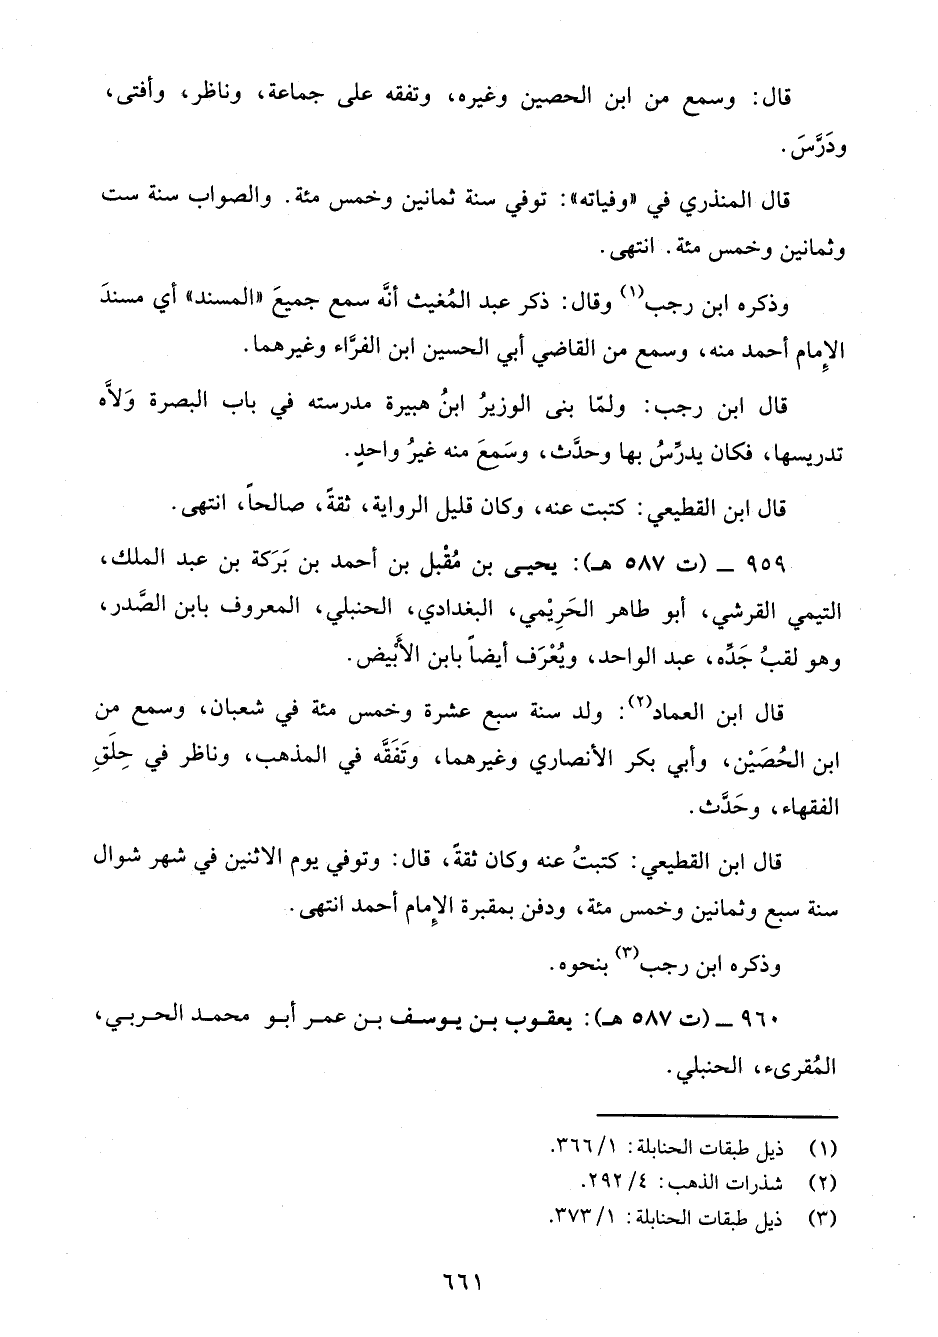 قال: وسمع من ابن الحصين وغيره، وتفقه على جماعة، وناظر، وأفتى،
ودَرَّسَ.
قال المنذري في «وفياته»: توفي سنة ثمانين وخمس مئة. والصواب سنة ست
وثمانين وخمس مئة. انتهى.
وذكره ابن رجب(١) وقال: ذكر عبد المُغيث أنَّه سمع جميعَ «المسند» أي مسندَ
الإِمام أحمد منه، وسمع من القاضي أبي الحسين ابن الفرَّاء وغيرهما.
قال ابن رجب: ولمّا بنى الوزيرُ ابنُ هبيرة مدرسته في باب البصرة وَلاَّه
تدريسها، فكان يدرِّسُ بها وحدَّث، وسَمعَ منه غيرُ واحدٍ.
قال ابن القطيعي: كتبت عنه، وكان قليل الرواية، ثقةً، صالحاً، انتهى.
٩٥٩ ـ (ت ٥٨٧ هـ): يحيى بن مُقْبل بن أحمد بن بَرَكة بن عبد الملك،
التيمي القرشي، أبو طاهر الحَرِيْمي، البغدادي، الحنبلي، المعروف بابن الصَّدر،
وهو لقبُ جَدِّه، عبد الواحد، ويُعْرَف أيضاً بابن الأَبْيض.
قال ابن العماد(٢): ولد سنة سبع عشرة وخمس مئة في شعبان، وسمع من
ابن الحُصَيْن، وأبي بكر الأنصاري وغيرهما، وتَفَقَّه في المذهب، وناظر في حِلَقِ
الفقهاء، وحَدَّث.
قال ابن القطيعي: كتبتُ عنه وكان ثقةً، قال: وتوفي يوم الاثنين في شهر شوال
سنة سبع وثمانين وخمس مئة، ودفن بمقبرة الإِمام أحمد انتهى.
وذكره ابن رجب(٣) بنحوه.
٩٦٠ ـ (ت ٥٨٧ هـ): يعقوب بن يوسف بن عمر أبو محمد الحربي،
المُقرىء، الحنبلي.
(١) ذيل طبقات الحنابلة: ١/ ٣٦٦.
(٢) شذرات الذهب: ٤/ ٢٩٢.
(٣) ذيل طبقات الحنابلة: ١/ ٣٧٣.
٦٦١